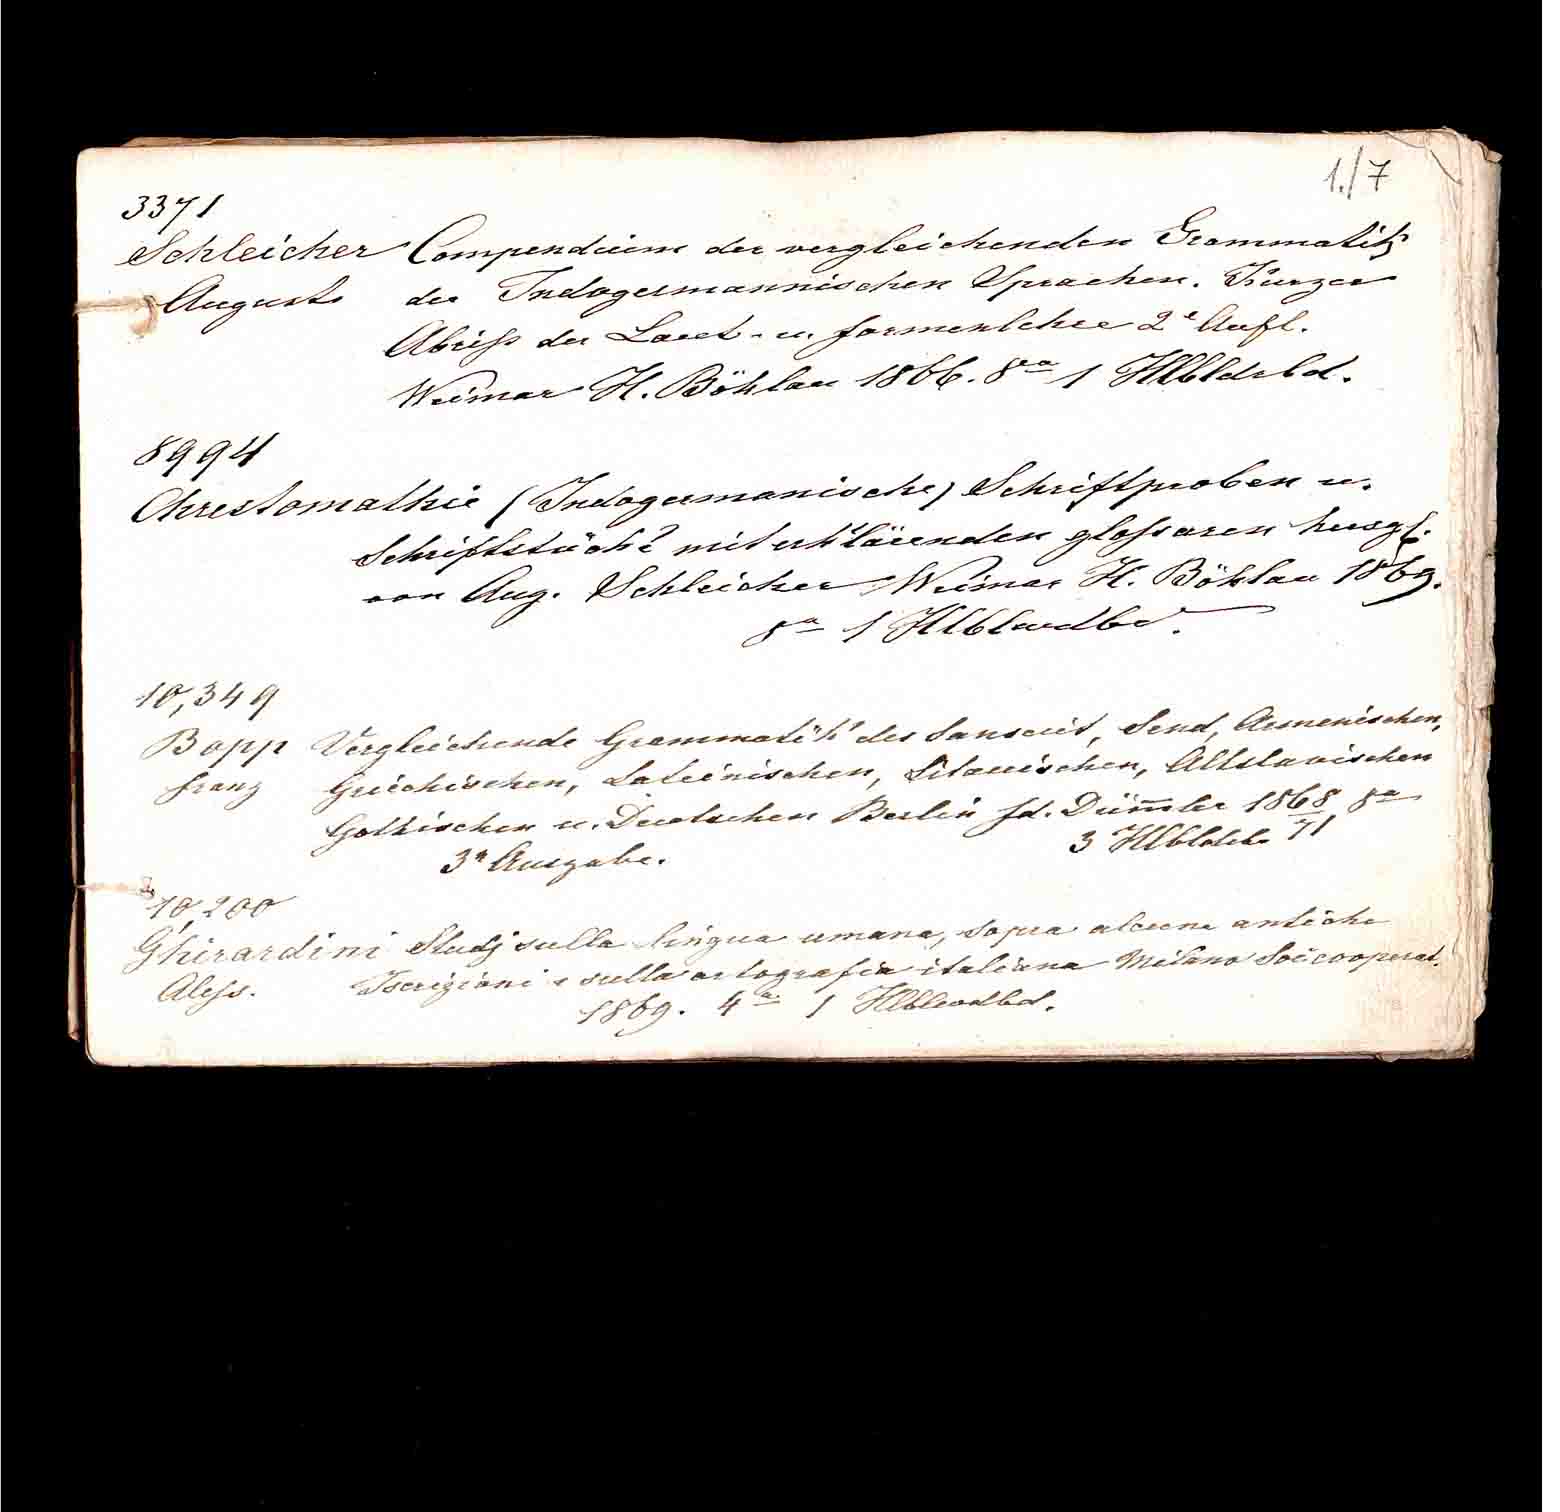 1./7
3371
Schleicher Compendium der vergleichenden Grammatik
August der Indogermannischen Sprachen. Kurzer
Abriss der Laut- u. formenlehre 2e Aufl.
Weimar H. Böhlau 1866. 8vo 1 Hlbldrbd.
8994
Chrestomathie (Indogermanische) Schriftproben u.
Schriftstücke mit erklärenden glossaren hersg.
von Aug. Schleicher Weimar H. Böhlau 1869.
8o 1 Hlblwdbd.
10,349
Bopp Vergleichende Grammatik des Sanscrit, Send, Armenischen,
franz Griechischen, Lateinischen, Litauischen, Altslavischen
Gothischen u. Deutschen Berlin fd. Dümmler 1868 8vo
3e Ausgabe. 3 71
10,200
Ghirardini Studj sulla lingua umana, sopra alcune antiche
Aless. Iscrizioni e sulla ortografia italiana Milano Soc. cooperat.
1869. 4o 1 Hlblwdbd.